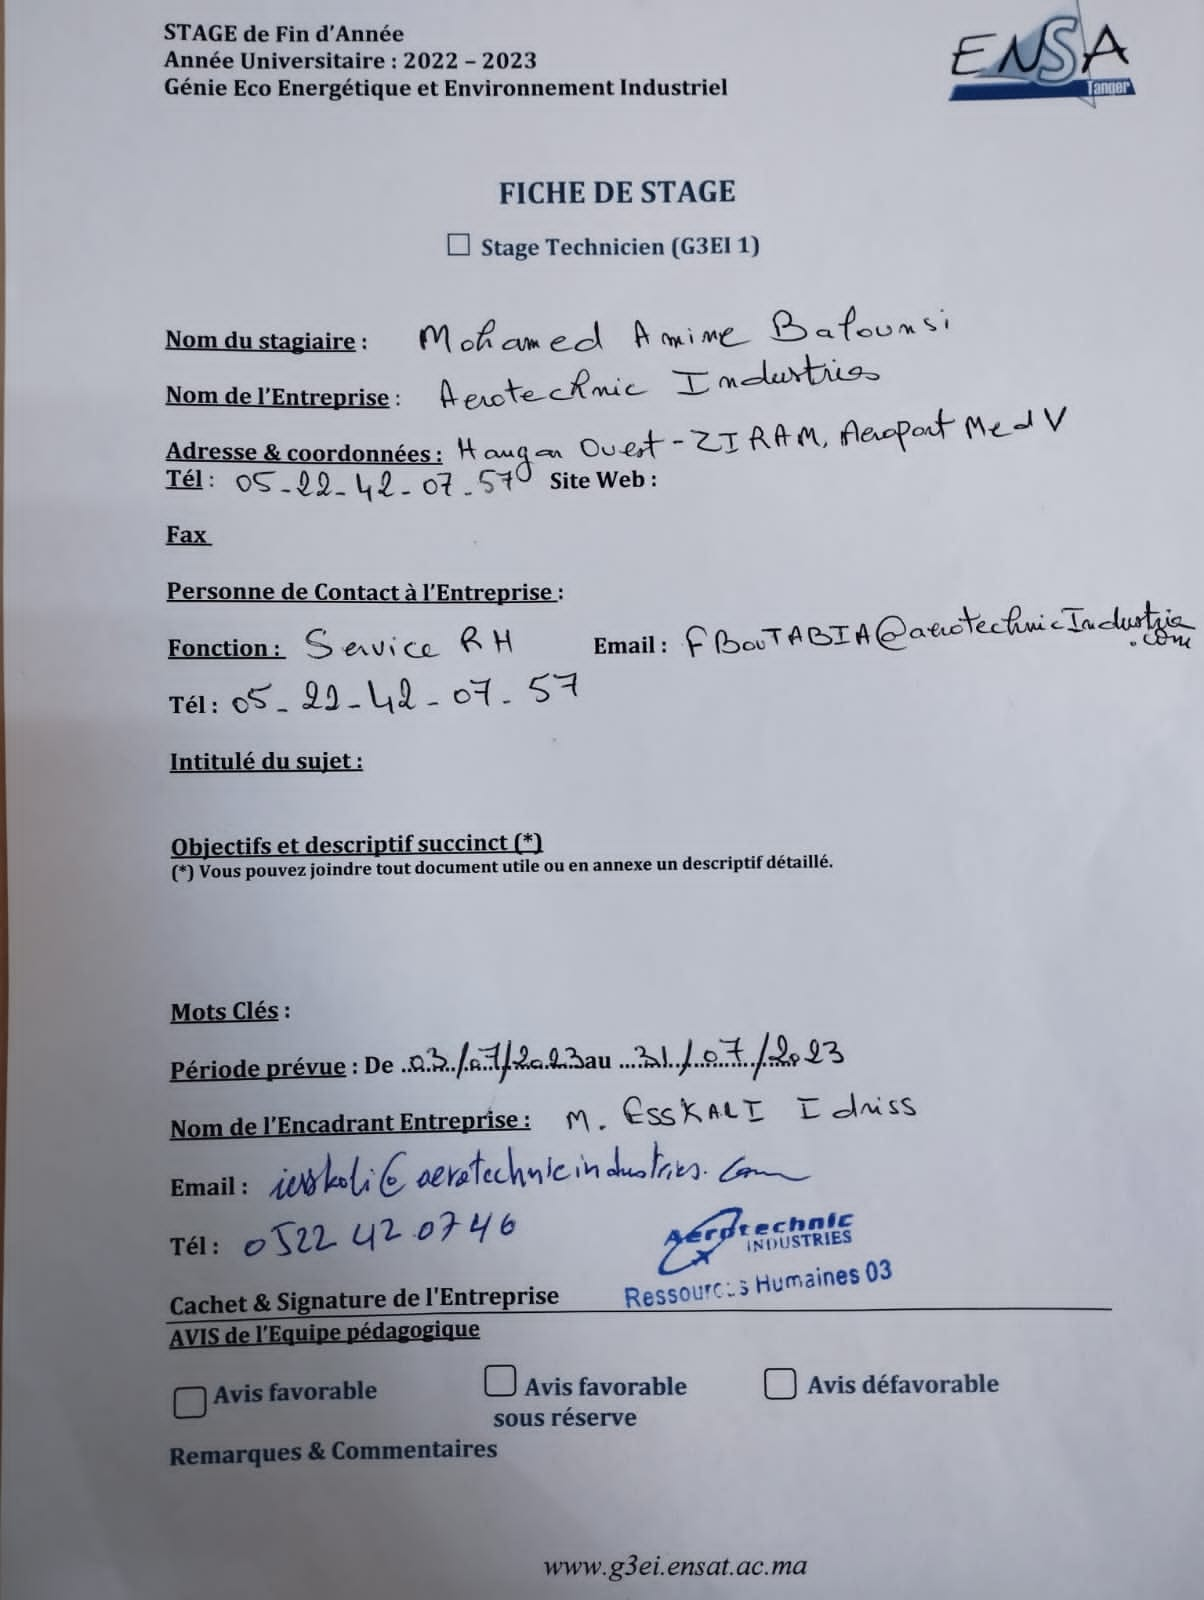 STAGE de Fin d'Année
Année Universitaire : 2022 – 2023
Génie Eco Energétique et Environnement Industriel
ENSA
Tanger
FICHE DE STAGE
Stage Technicien (G3EI 1)
Nom du stagiaire : Mohamed Amine Bafounsi
Nom de l'Entreprise : Aerotechnic Industries
Adresse & coordonnées : Hangar Ouest - ZIRAM, Aeroport Med V
Tél : 05-22-42-07-57 Site Web :
Fax
Personne de Contact à l'Entreprise :
Fonction : Service RH Email : FBouTABIA@aerotechnicIndustries.com
Tél : 05-22-42-07-57
Intitulé du sujet :
Objectifs et descriptif succinct (*)
(*) Vous pouvez joindre tout document utile ou en annexe un descriptif détaillé.
Mots Clés :
Période prévue : De 03/07/2023 au 31/07/2023
Nom de l'Encadrant Entreprise : M. ESSKALI Idriss
Email : @aerotechnicindustries.com
Tél : 0522 42 07 46
Aerotechnic
INDUSTRIES
Ressources Humaines 03
Cachet & Signature de l'Entreprise
AVIS de l'Equipe pédagogique
Avis favorable Avis favorable sous réserve Avis défavorable
Remarques & Commentaires
www.g3ei.ensat.ac.ma